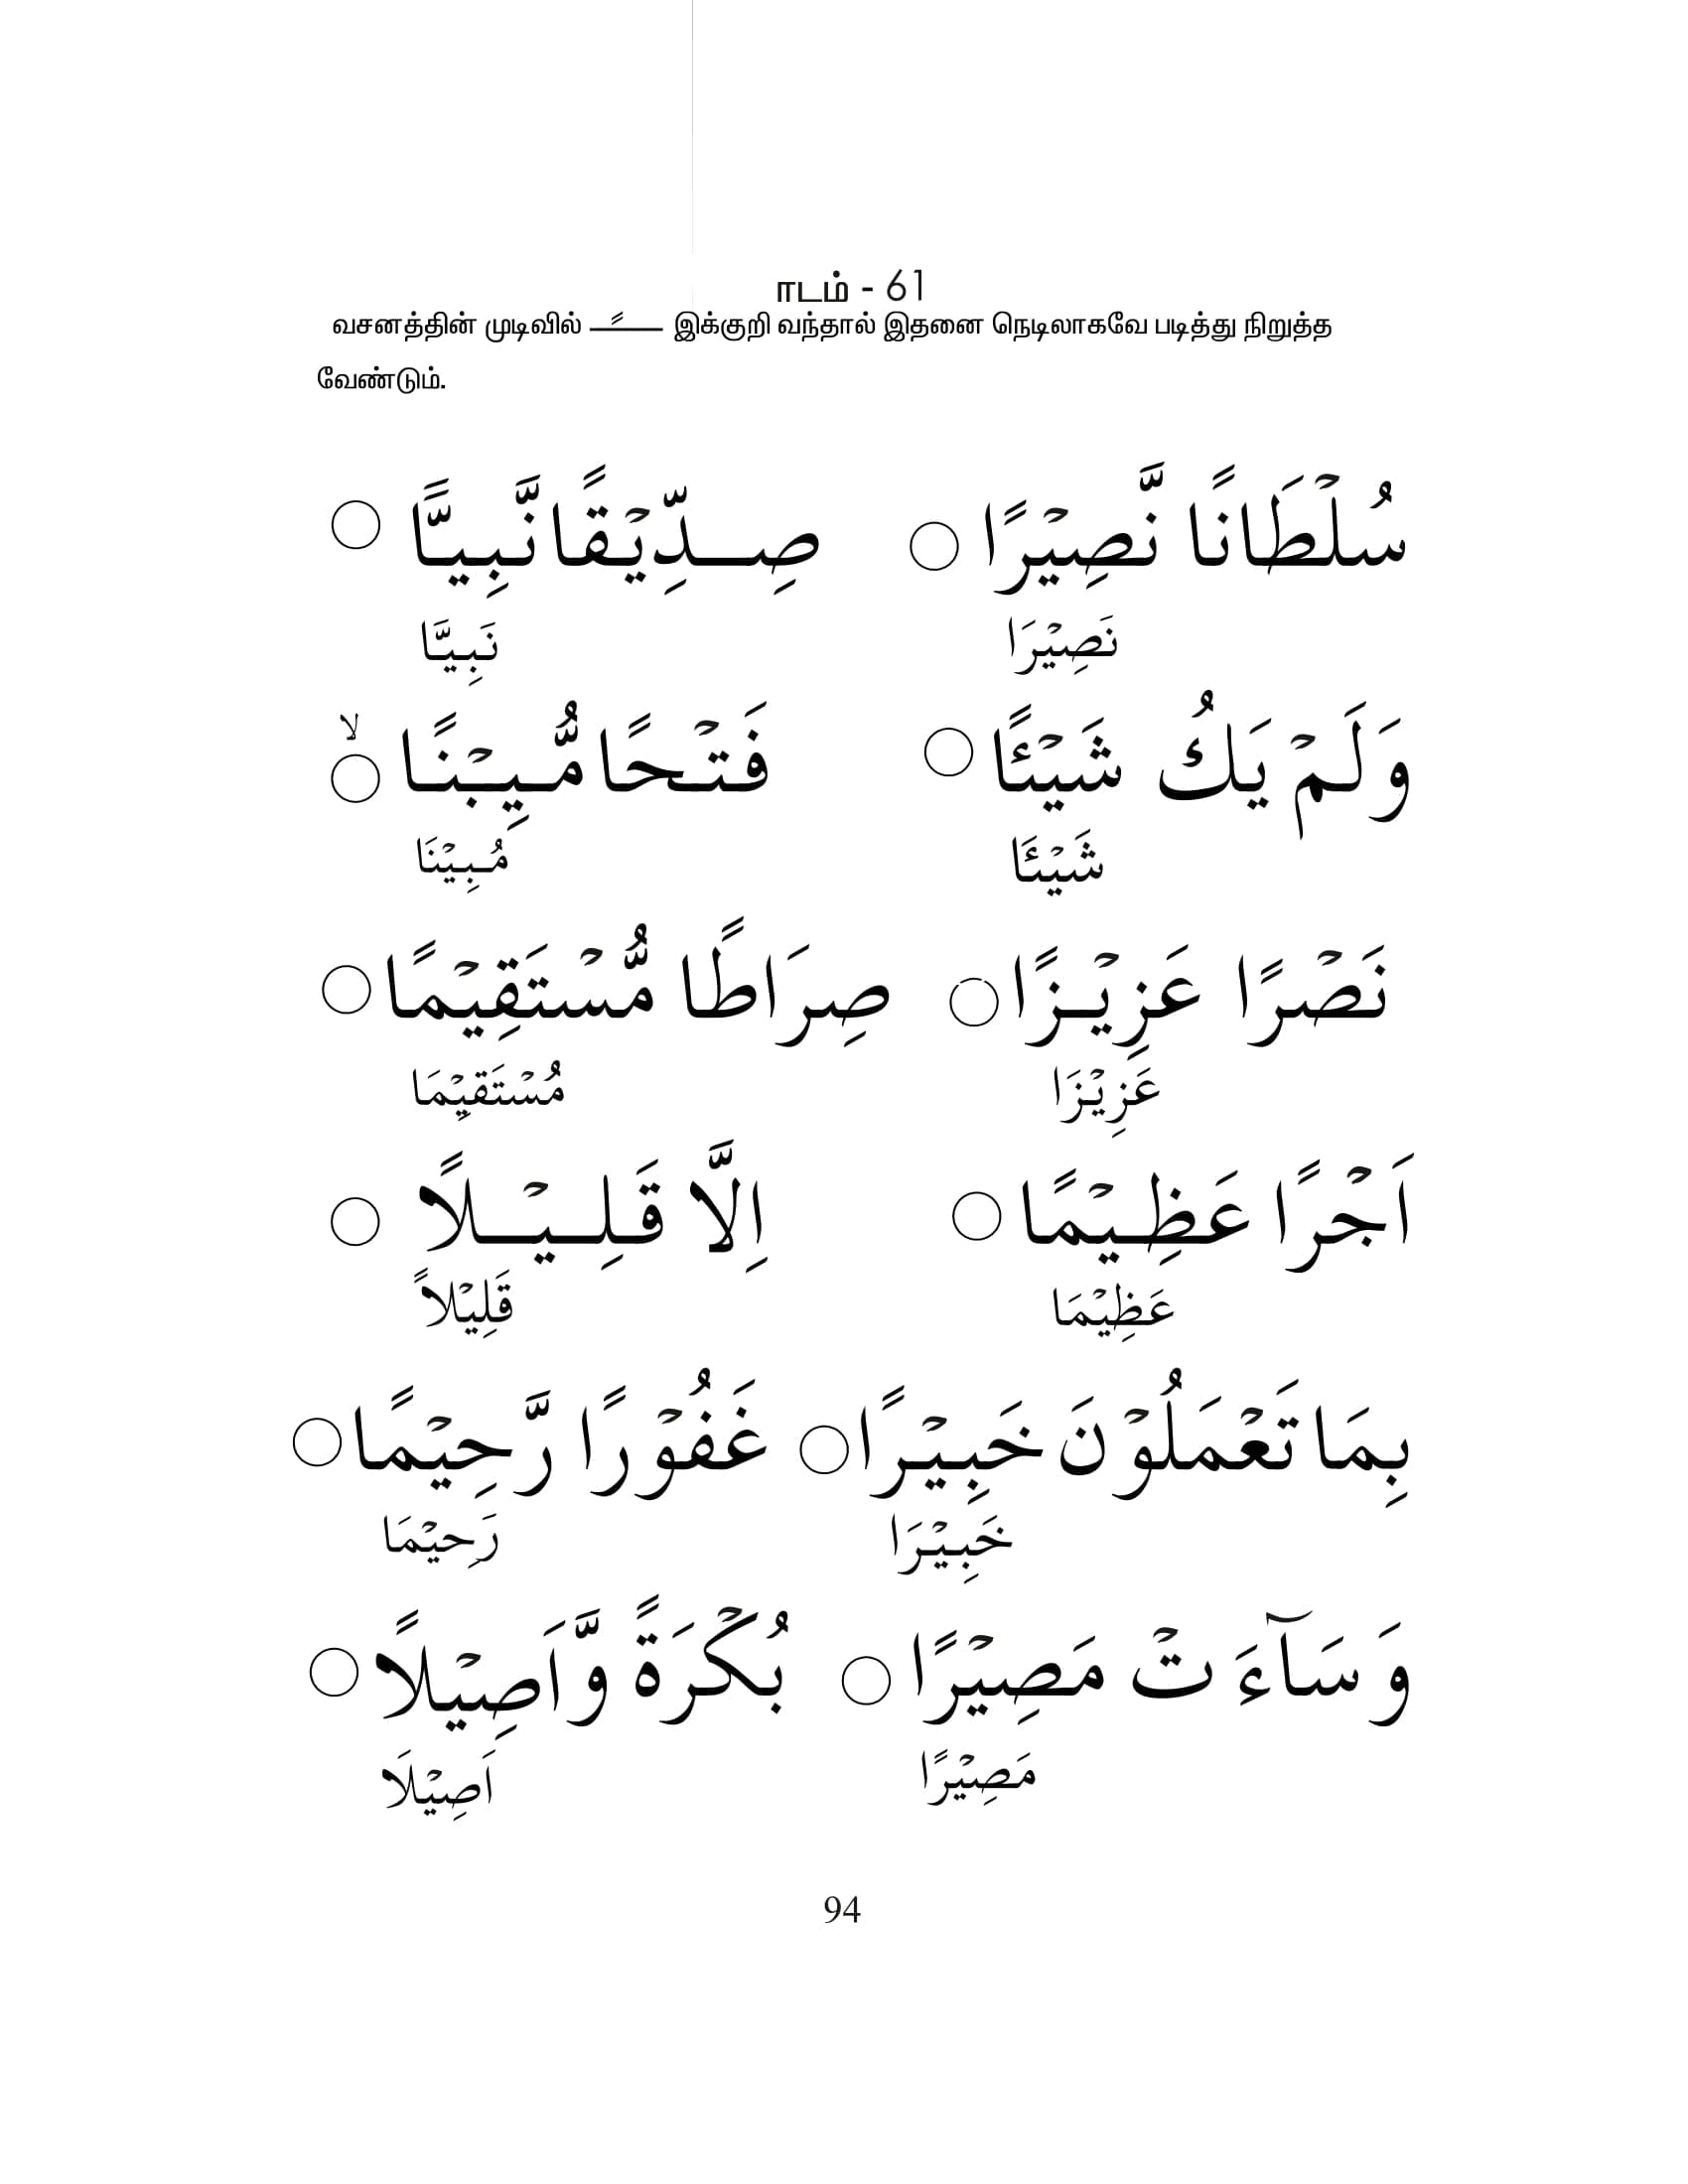 ாடம் - 61
வசனத்தின் முடிவில் ـــًـــ இக்குறி வந்தால் இதனை நெடிலாகவே படித்து நிறுத்த
வேண்டும்.
سُلْطَانًا نَّصِيْرًا ○ صِدِّيْقًا نَّبِيًّا ○
نَصِيْرَا نَبِيَّا
وَلَمْ يَكُ شَيْئًا ○ فَتْحًا مُّبِيْنًا ○ۙ
شَيْئَا مُبِيْنَا
نَصْرًا عَزِيْزًا ○ صِرَاطًا مُّسْتَقِيْمًا ○
عَزِيْزَا مُسْتَقِيْمَا
اَجْرًا عَظِيْمًا ○ اِلَّا قَلِيْلًا ○
عَظِيْمَا قَلِيْلاً
بِمَا تَعْمَلُوْنَ خَبِيْرًا ○ غَفُوْرًا رَّحِيْمًا ○
خَبِيْرَا رَحِيْمَا
وَ سَآءَتْ مَصِيْرًا ○ بُكْرَةً وَّاَصِيْلاً ○
مَصِيْرًا اَصِيْلَا
94